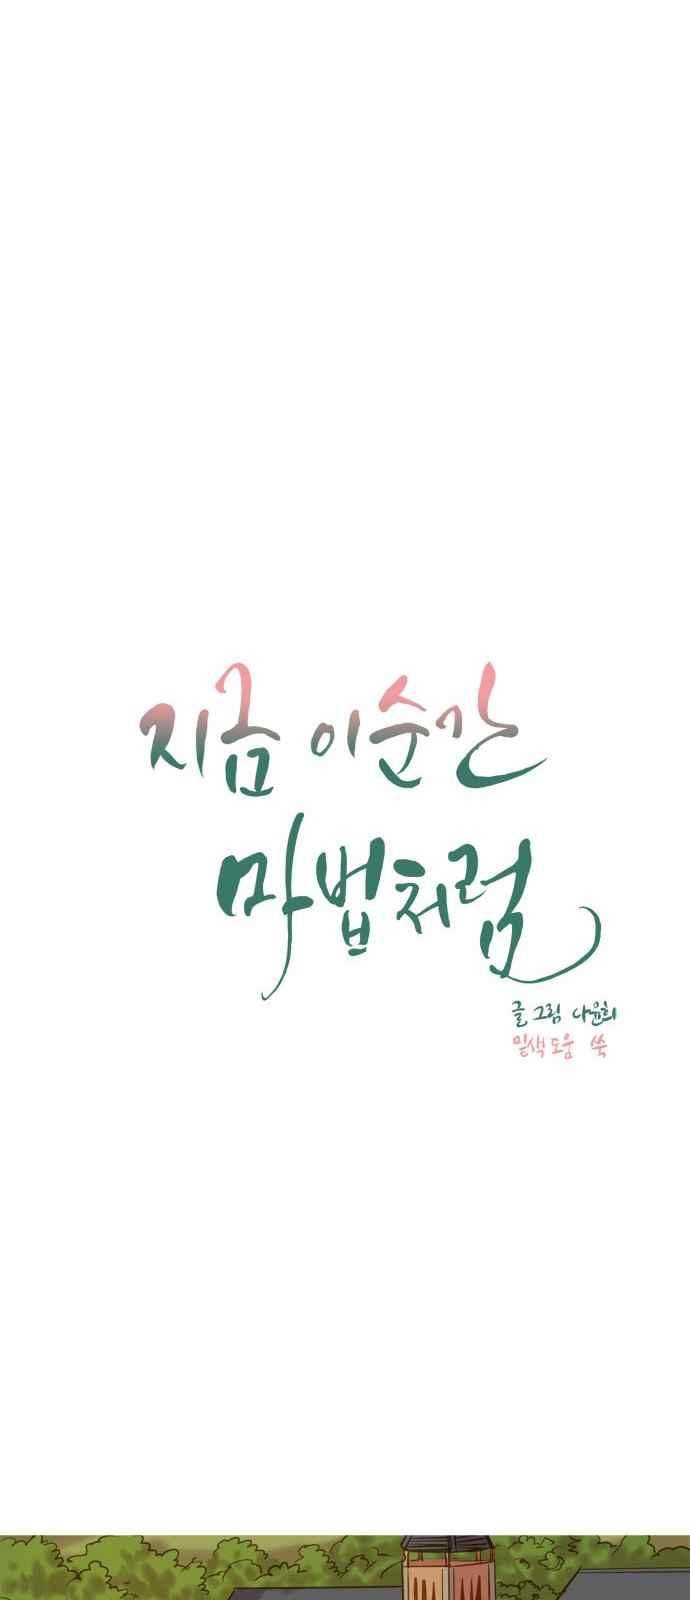 지금 이순간
마법처럼
글 그림 나윤희
밑색 도움 쑥